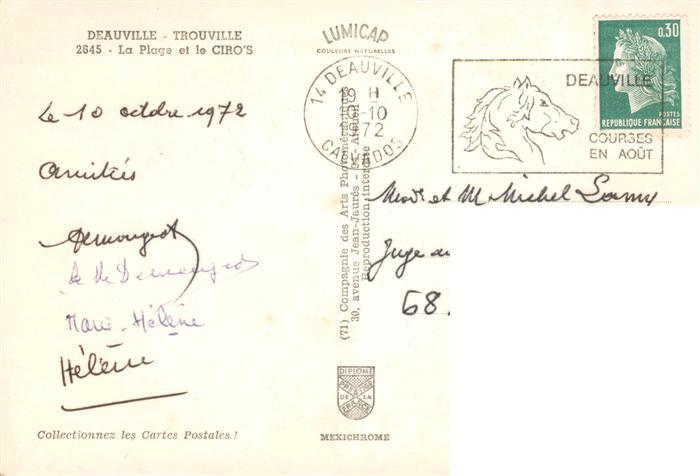 DEAUVILLE - TROUVILLE
2645 - La Plage et le CIRO'S
LUMICAP
COULEURS NATURELLES
14 DEAUVILLE
19 H
-10
1972
CALVADOS
DEAUVILLE
COURSES
EN AOÛT
0,30
POSTES
REPUBLIQUE FRANÇAISE
Le 10 octobre 1972
Amitiés
Demougeot
Marie-Hélène
Hélène
(71) Compagnie des Arts Photomécaniques
30, avenue Jean-Jaurès -
Reproduction interdite
et M Michel
Juge au
68.
DIPLOME
PRESTIGE
DE LA
FRANCE
Collectionnez les Cartes Postales !
MEXICHROME